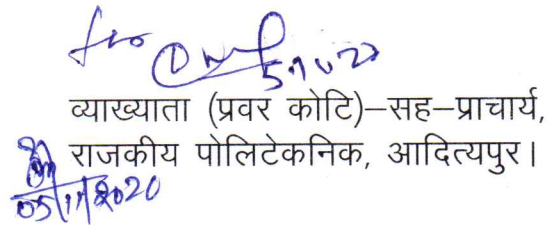 5.11.20
व्याख्याता (प्रवर कोटि)–सह–प्राचार्य,
राजकीय पोलिटेकनिक, आदित्यपुर।
05/11/2020